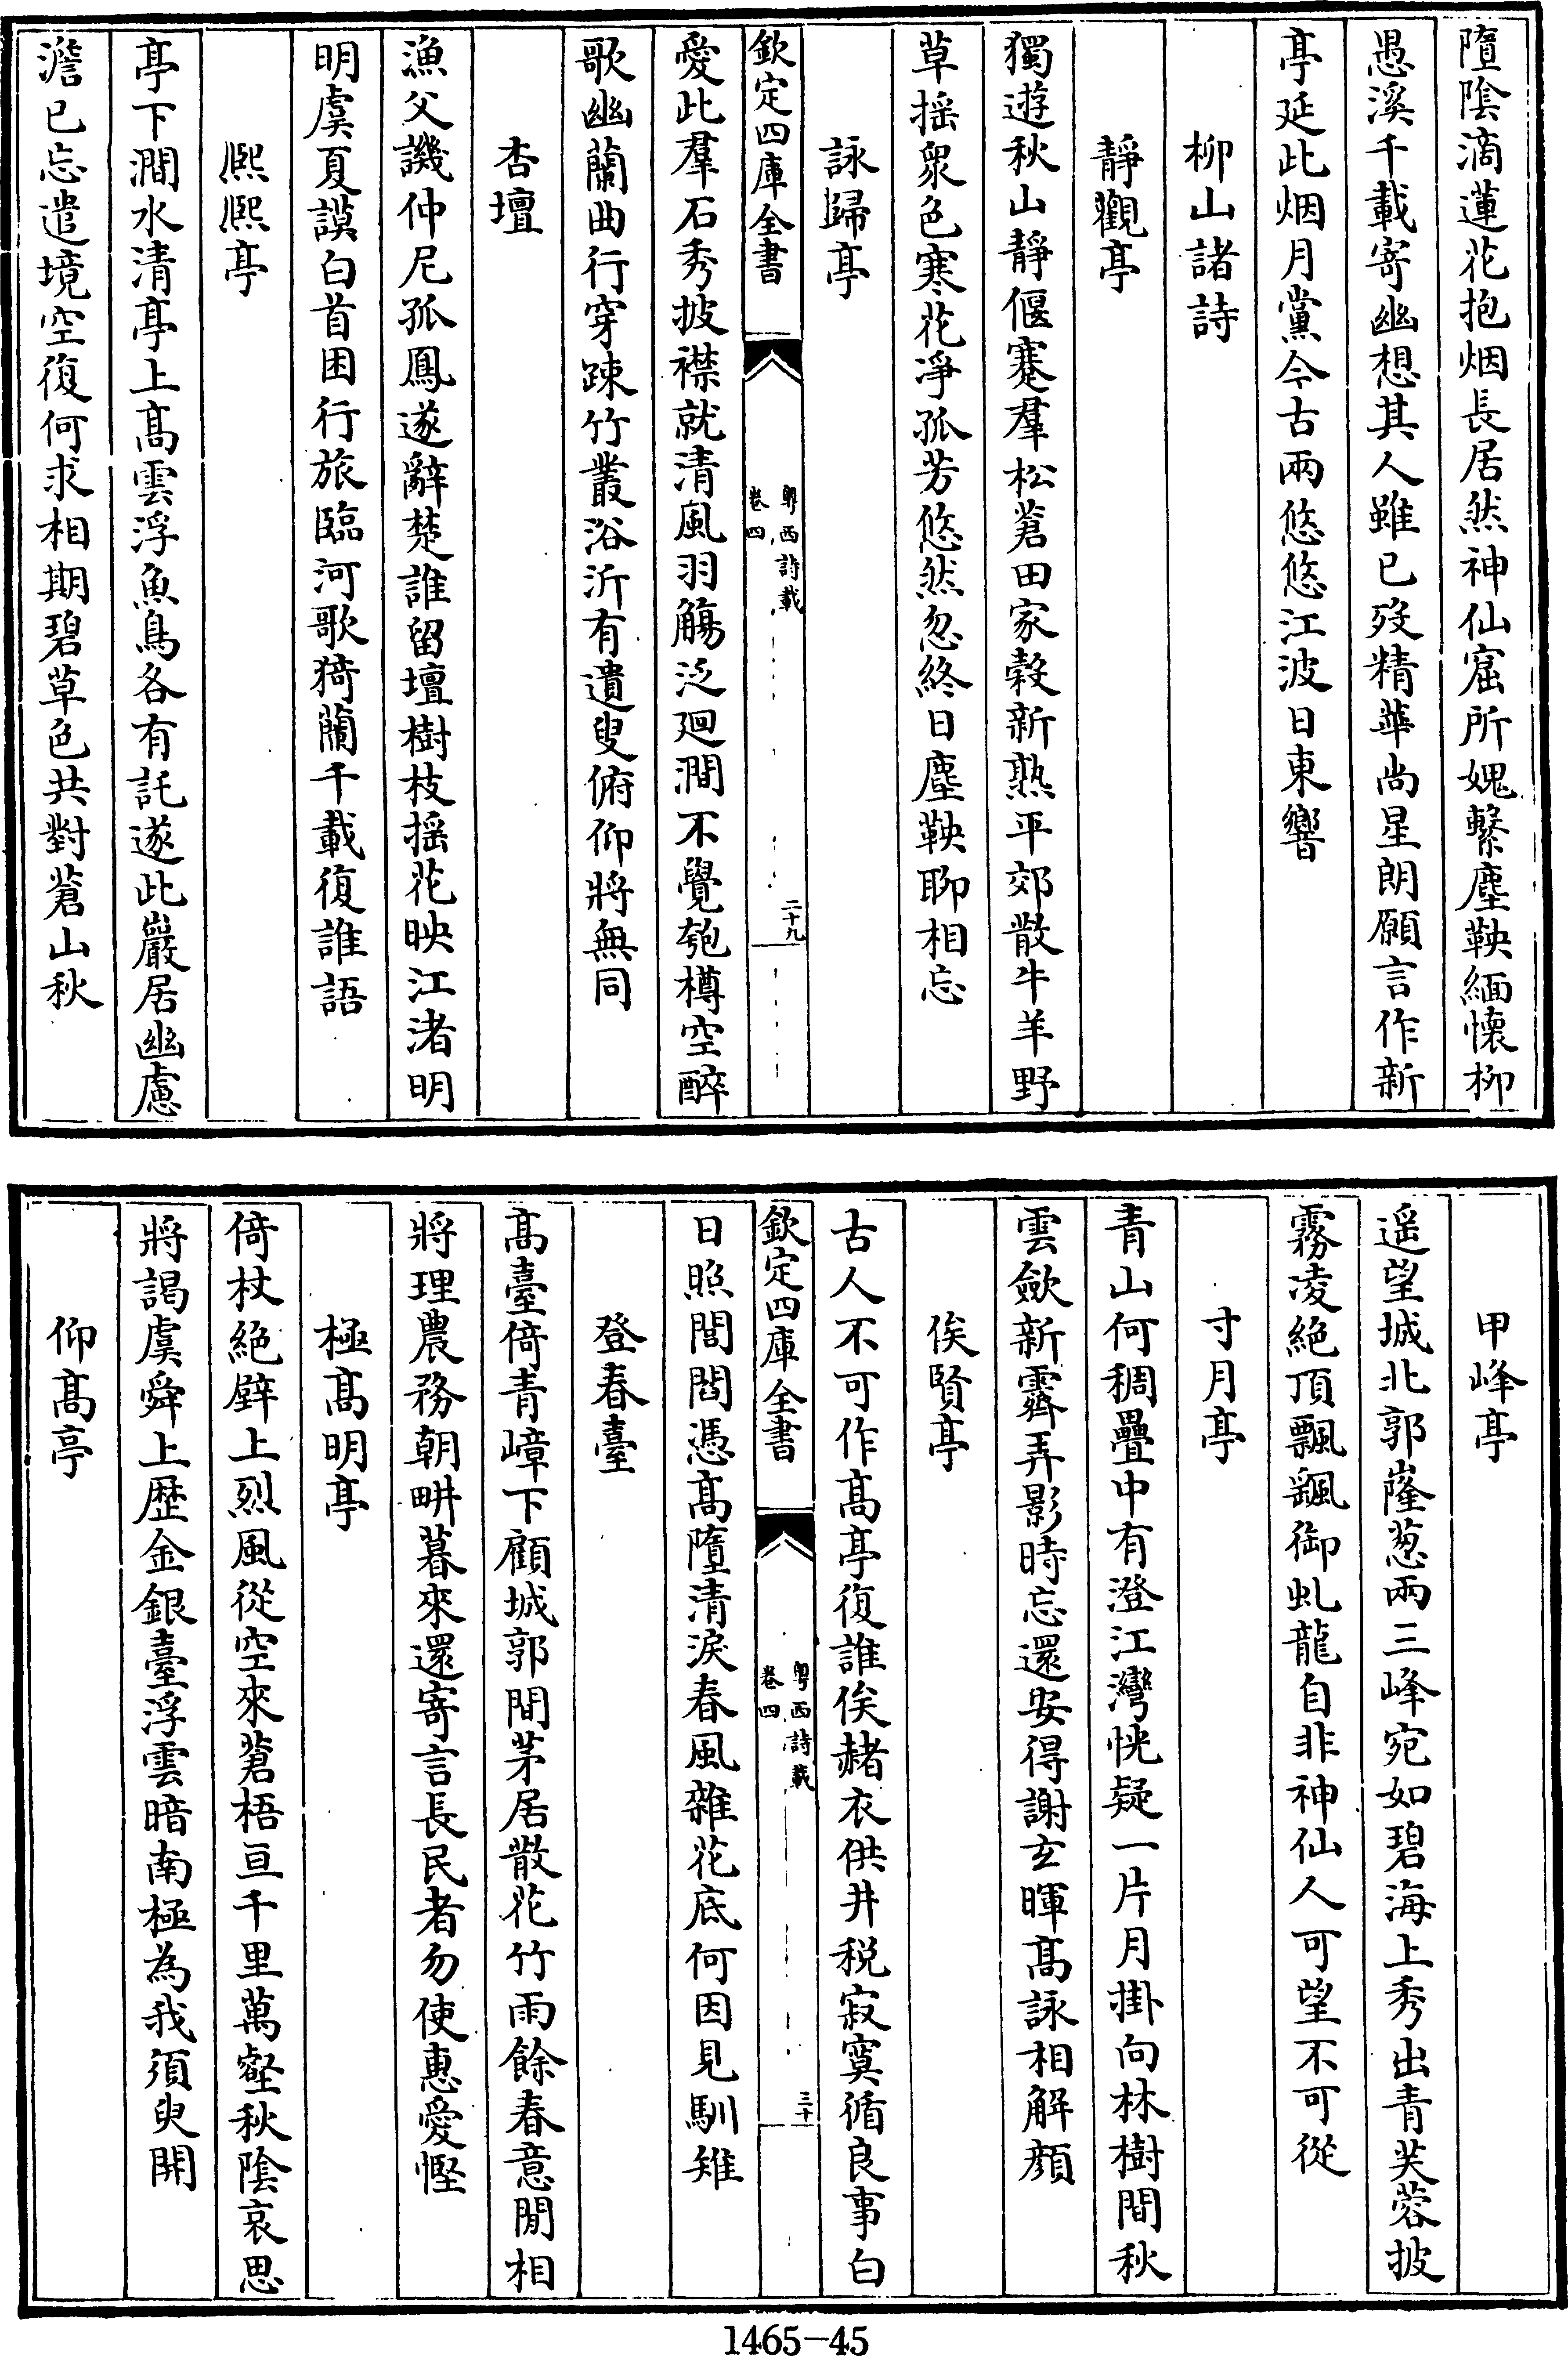 墮陰滴蓮花抱烟長居然神仙窟所媿繫塵鞅緬懷柳
愚溪千載寄幽想其人雖已歿精華尚星朗願言作新
亭延此烟月黨今古兩悠悠江波日東響
柳山諸詩
靜觀亭
獨遊秋山靜偃蹇羣松蒼田家穀新熟平郊散牛羊野
草揺衆色寒花凈孤芳悠然忽終日塵鞅聊相忘
詠歸亭
欽定四庫全書
粤西詩載
卷四
二十九
愛此羣石秀披襟就清風羽觴泛廻澗不覺匏樽空醉
歌幽蘭曲行穿踈竹叢浴沂有遺叟俯仰將無同
杏壇
漁父譏仲尼孤鳳遂辭楚誰留壇樹枝揺花映江渚明
明虞夏謨白首困行旅臨河歌猗蘭千載復誰語
熈熈亭
亭下澗水清亭上髙雲浮魚鳥各有託遂此巖居幽慮
澹已忘遣境空復何求相期碧草色共對蒼山秋
甲峰亭
遥望城北郭嶐葱兩三峰宛如碧海上秀出青芙蓉披
霧凌絶頂飄飖御虬龍自非神仙人可望不可從
寸月亭
青山何稠疊中有澄江灣恍疑一片月掛向林樹間秋
雲歛新霽弄影時忘還安得謝玄暉髙詠相解顔
俟賢亭
古人不可作髙亭復誰俟赭衣供井税寂寞循良事白
欽定四庫全書
粤西詩載
卷四
三十
日照閭閻憑髙墮清淚春風雜花底何因見馴雉
登春臺
髙臺倚青嶂下顧城郭間茅居散花竹雨餘春意閒相
將理農務朝畊暮來還寄言長民者勿使惠愛慳
極髙明亭
倚杖絶壁上烈風從空來蒼梧亘千里萬壑秋陰哀思
將謁虞舜上歴金銀臺浮雲暗南極為我須臾開
仰髙亭
1465-45